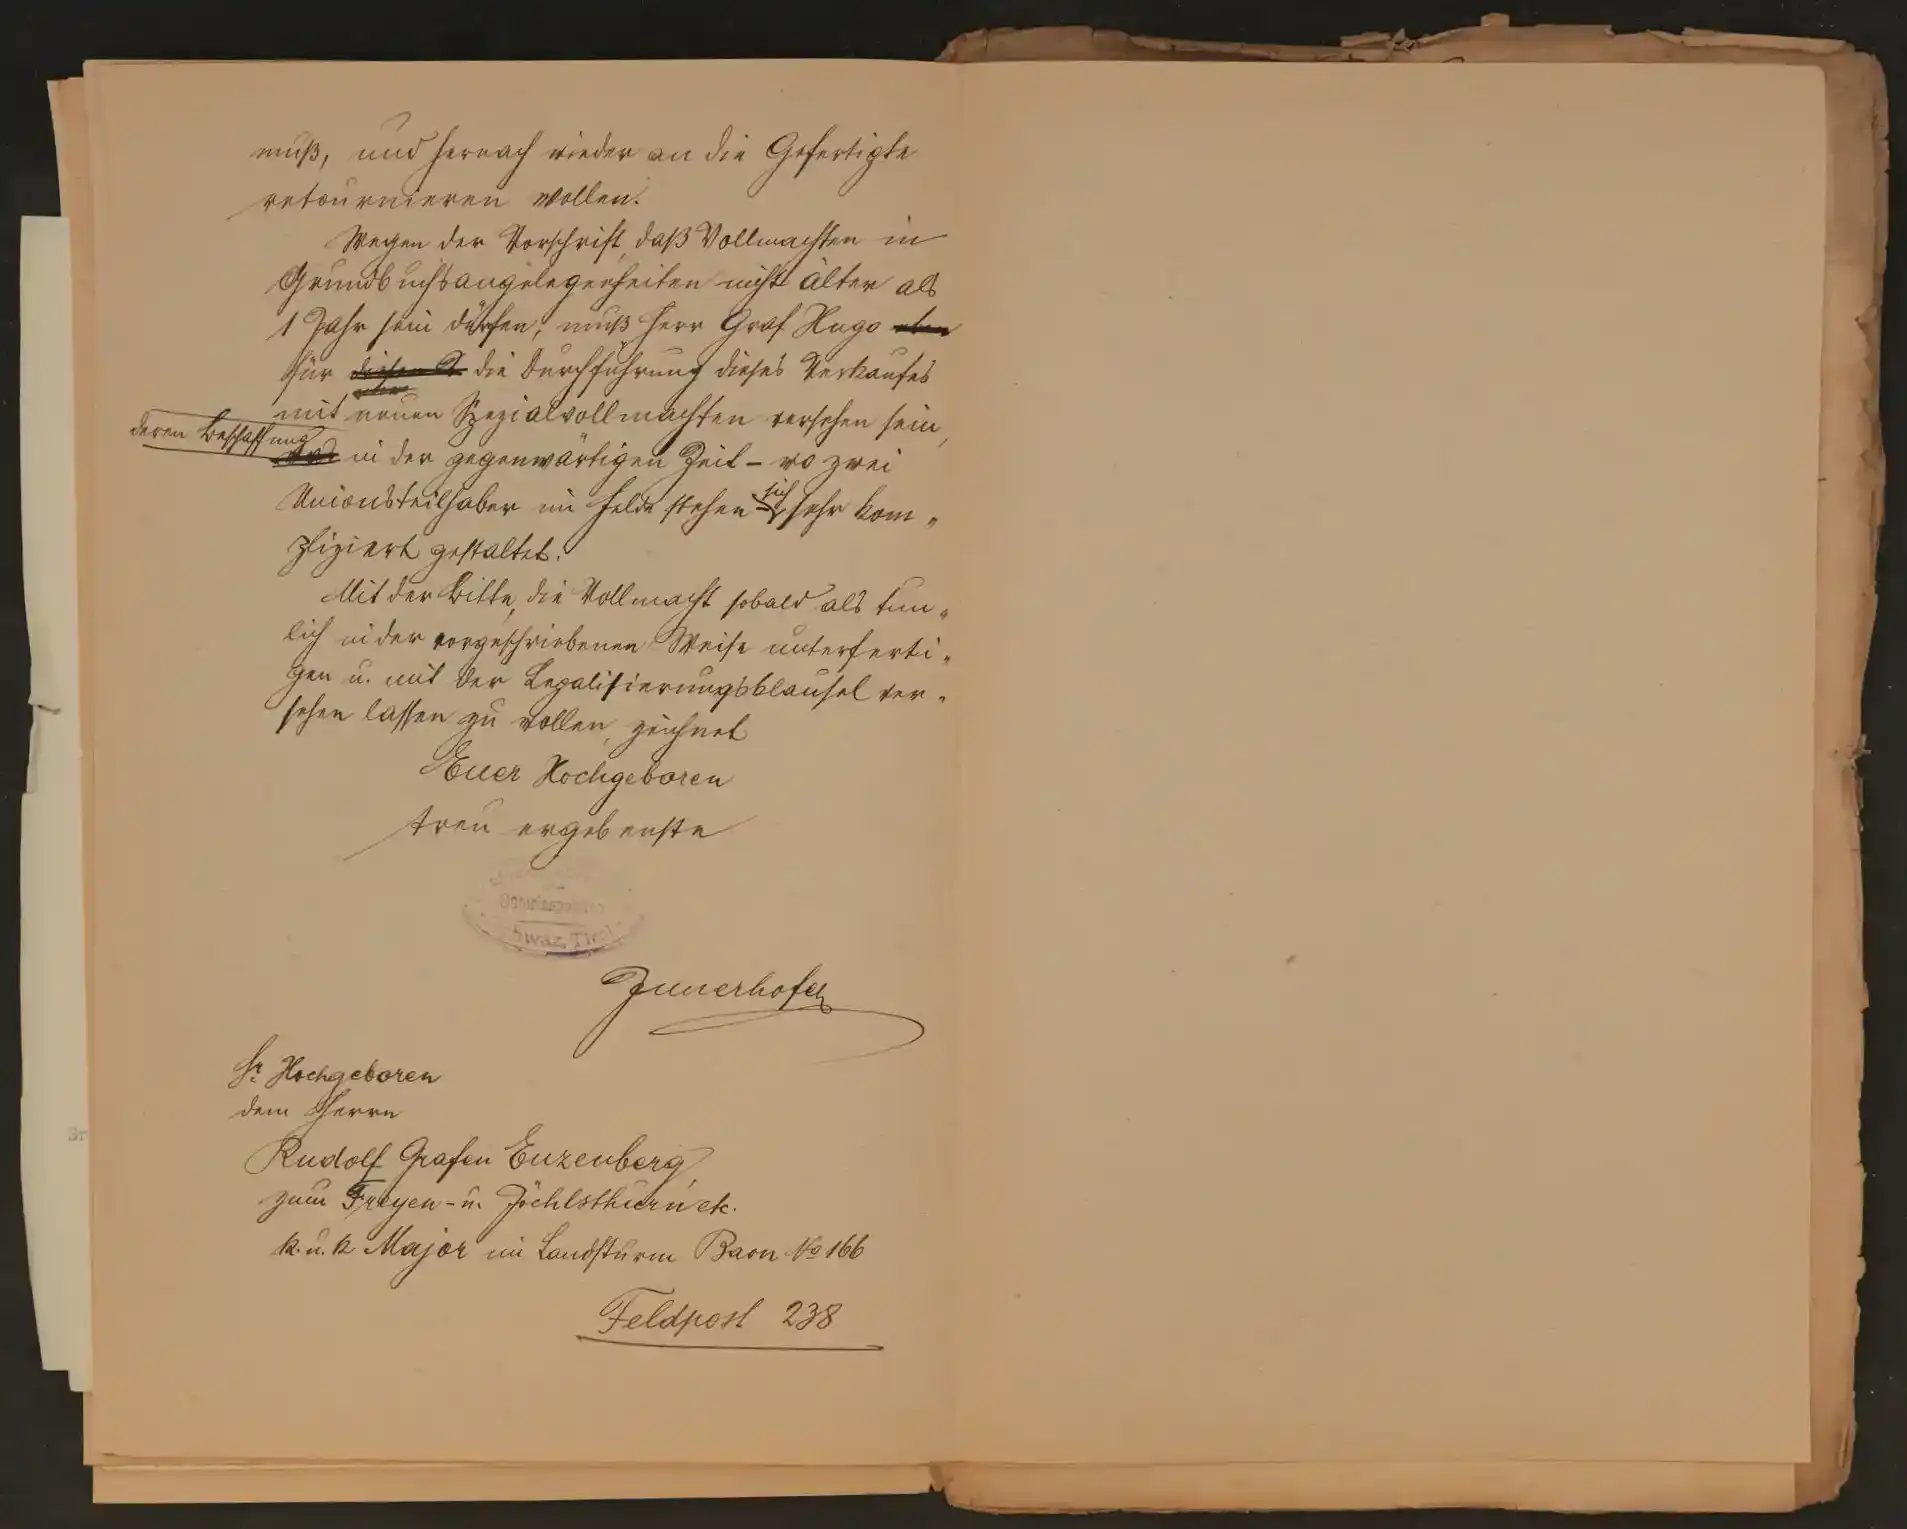 muß, und hernach wieder an die Gefertigte
retournieren wollen.
Wegen der Vorschrift, daß Vollmachten in
Grundbuchsangelegenheiten nicht älter als
1 Jahr sein dürfen, muß Herr Graf Hugo eben
für diesen die Durchführung dieses Verkaufes
mit neuen Spezialvollmachten versehen sein,
deren Beschaffung
in der gegenwärtigen Zeit – wo zwei
Unionsteilhaber im Felde stehen – sich sehr kom„
pliziert gestaltet.
Mit der Bitte, die Vollmacht sobald als tun„
lich in der vorgeschriebenen Weise unterferti„
gen u. mit der Legalisierungsklausel ver„
sehen lassen zu wollen, zeichnet
Euer Hochgeboren
treu ergebenste
Schwaz, Tirol
Innerhofer
Sr. Hochgeboren
dem Herrn
Rudolf Grafen Enzenberg
zum Freyen- u. Jöchlsthurn etc.
k. u. k Major im Landsturm Baon No 166
Feldpost 238